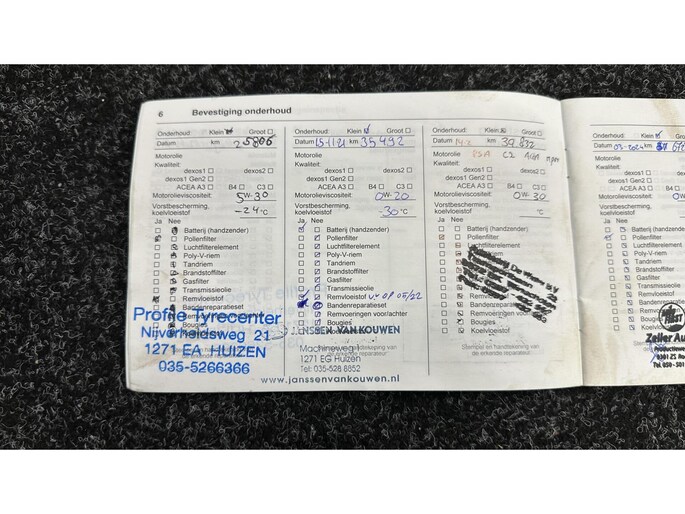 6 Bevestiging onderhoud
Onderhoud: Klein Groot
Datum km 25806
Motorolie
Kwaliteit:
dexos1 dexos2
dexos1 Gen2
ACEA A3 B4 C3
Motorolieviscositeit: 5W-30
Vorstbescherming,
koelvloeistof -24°C
Ja Nee
Batterij (handzender)
Pollenfilter
Luchtfilterelement
Poly-V-riem
Tandriem
Brandstoffilter
Gasfilter
Transmissieolie
Remvloeistof
Profile Tyrecenter
Nijverheidsweg 21
1271 EA HUIZEN
035-5266366
Onderhoud: Klein Groot
Datum 15-11-21 km 35492
Motorolie
Kwaliteit:
dexos1 dexos2
dexos1 Gen2
ACEA A3 B4 C3
Motorolieviscositeit: 0W-20
Vorstbescherming,
koelvloeistof -30°C
Ja Nee
Batterij (handzender)
Pollenfilter
Luchtfilterelement
Poly-V-riem
Tandriem
Brandstoffilter
Gasfilter
Transmissieolie
Remvloeistof 05/22
Bandenreparatieset
Remvoeringen voor/achter
Bougies
JANSSEN VAN KOUWEN
Machineweg 1
1271 EG Huizen
Tel: 035-528 6852
www.janssenvankouwen.nl
Onderhoud: Klein Groot
Datum km 39.832
Motorolie C2
Kwaliteit:
dexos1 dexos2
dexos1 Gen2
ACEA A3 B4 C3
Motorolieviscositeit: 0W-30
Vorstbescherming,
koelvloeistof °C
Ja Nee
Batterij (handzender)
Pollenfilter
Luchtfilterelement
Poly-V-riem
Tandriem
Brandstoffilter
Gasfilter
Bougies
Koelvloeistof
Stempel en handtekening van
de erkende reparateur
Onderhoud:
Datum 03-2024 km
Motorolie
Kwaliteit:
dexos1
dexos1 Gen2
ACEA A3
Motorolieviscositeit:
Vorstbescherming,
koelvloeistof
Ja Nee
Batterij (handzender)
Pollenfilter
Luchtfilterelement
Poly-V-riem
Tandriem
Brandstoffilter
Gasfilter
Transmissieolie
Zeller Au